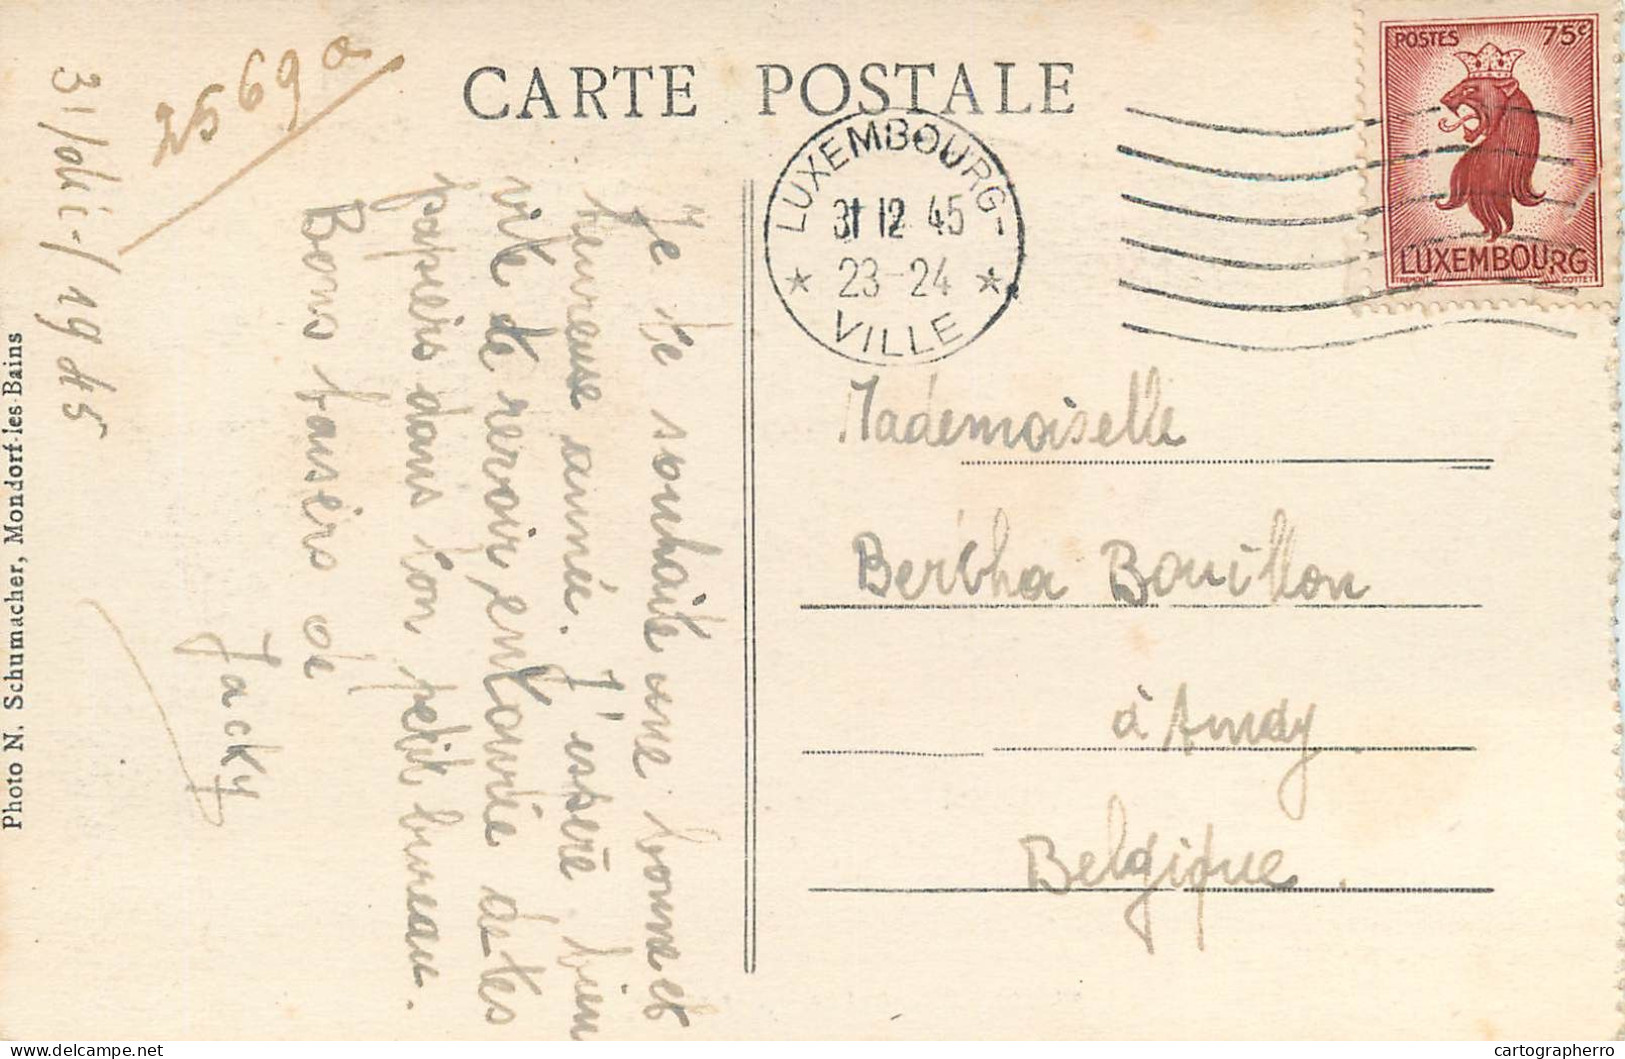 CARTE POSTALE
2569a
31/déc/1945
Je te souhaite une bonne et
heureuse année. J'espère bien
vite te revoir, entourée de tes
papiers dans ton petit bureau.
Bons baisers de
Jacky
Photo N. Schumacher, Mondorf-les-Bains
LUXEMBOURG-
31 12 45
23-24
VILLE
POSTES 75c
LUXEMBOURG
COTTET
Mademoiselle
Bertha Bouillon
à Amay
Belgique.
cartographerro